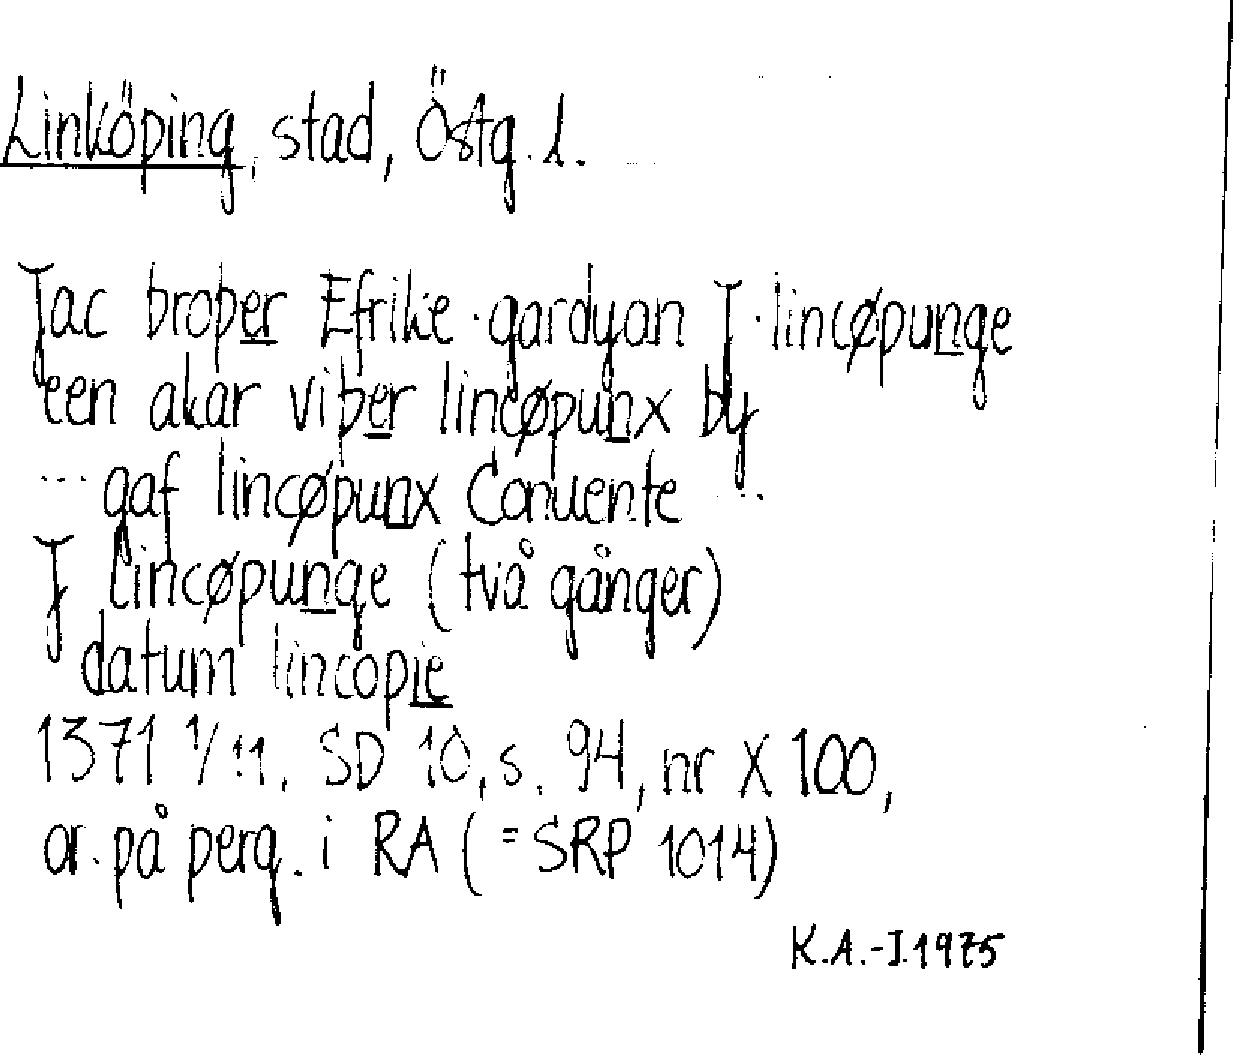 Linköping, stad, Östg. l.
Jac broþer Efrike gardyan J lincøpunge
een akar viþer lincøpunx by
... gaf lincøpunx Conuente ...
J Lincøpunge (två gånger)
datum lincopie
1371 1/11. SD 10, s. 94, nr X 100,
or. på perg. i RA (=SRP 1014)
K.A.-I.1975